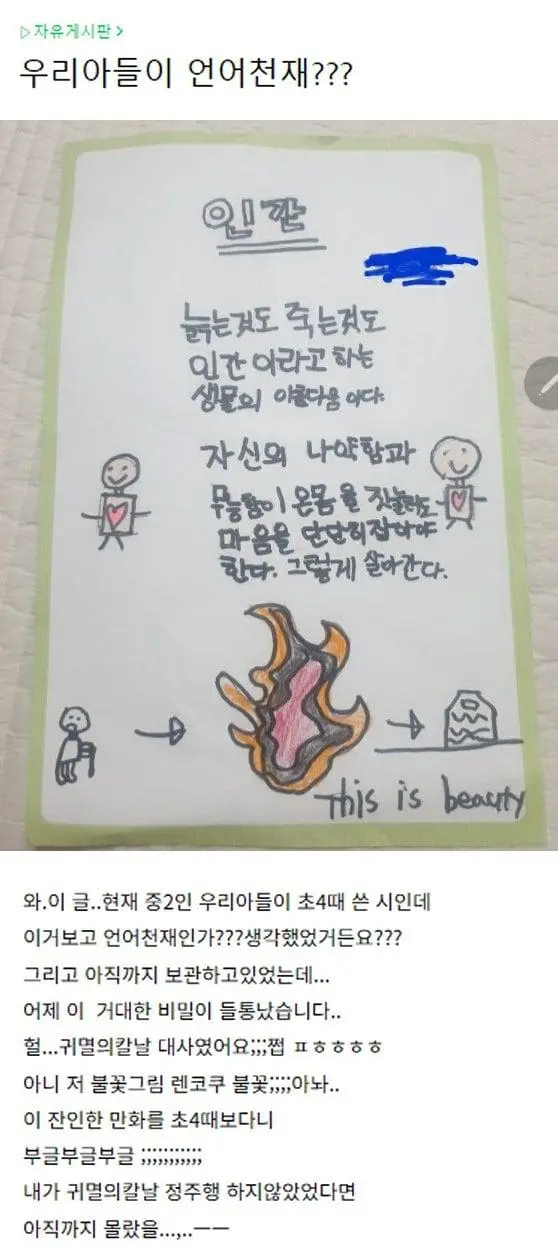 ▷자유게시판 >
우리아들이 언어천재???
인간
늙는것도 죽는것도
인간이라고 하는
생물의 아름다움 이다.
자신의 나약함과
무능함이 온몸을 짓눌러도
마음을 단단히잡아야
한다. 그렇게 살아간다.
This is beauty
와.이 글..현재 중2인 우리아들이 초4때 쓴 시인데
이거보고 언어천재인가???생각했었거든요???
그리고 아직까지 보관하고있었는데...
어제 이 거대한 비밀이 들통났습니다..
헐...귀멸의칼날 대사였어요;;;쩝 ㅍㅎㅎㅎㅎ
아니 저 불꽃그림 렌코쿠 불꽃;;;;아놔..
이 잔인한 만화를 초4때보다니
부글부글부글 ;;;;;;;;;;;;
내가 귀멸의칼날 정주행 하지않았었다면
아직까지 몰랐을...,..ㅡㅡ